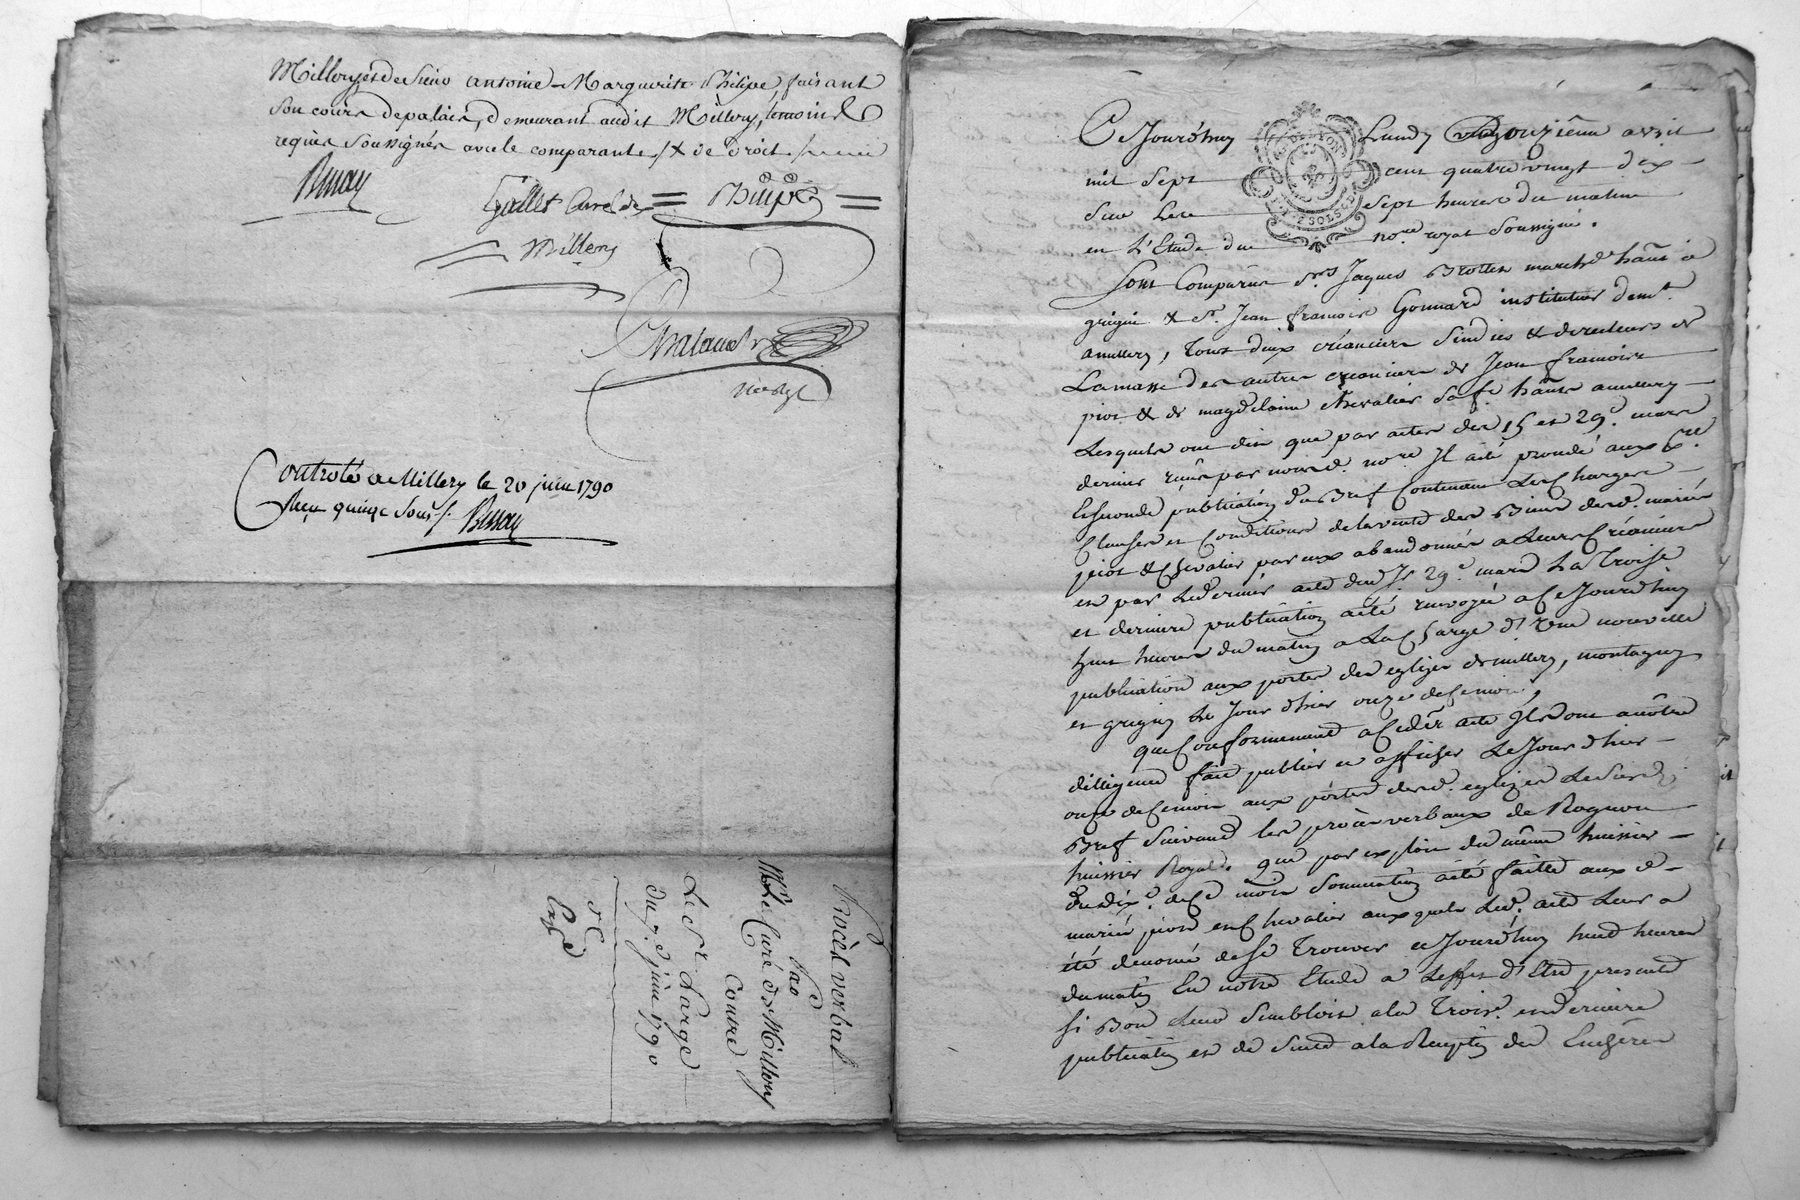 Millery et de Sieur antoine Marguerite Philipe, faisant
son cours de palais, demeurant audit Millery, temoins
requis soussignés avec le comparant /. X de droit
Bussay
Gallet Curé de Philipe
Millery
Chatanet
Controlé a Millery le 20 juin 1790
Reçu quinze sous /. Bussay
Procès verbal
Pao
Mre Le Curé de Millery
Contre
Le Sr Farge
du 7e juin 1790
Ce Jourd'huy Lundy douzième avril
mil sept cent quatre vingt dix
sur Les sept heures du matin
en L'Etude du nore royal soussigné.
Sont Comparus Srs Jaques Brotten marchd habt à
grigni & Sr Jean francois Gonnard instituteur demt
a millery, Tous deux créanciers Sindics & directeurs de
La masse des autres créanciers de Jean francois
piot & de magdelaine chevalier sa fe habts a millery
Lesquels ont dit que par actes des 15 et 29e mars
dernier reçus par nousd. nore Il a été procédé aux 1re
Et seconde publication du Bref Contenant Les Charges
Clauses et Conditions de la vente des Biens desd. mariés
piot & Chevalier par eux abandonnés a Leurs Créanciers
et par Le dernier acte dud. Jr 29e mars La Troise
et derniere publication a été renvoyée a Ce Jourd'huy
huit heures du matin a La Charge d'Une nouvelle
publication aux portes des eglizes de millery, montagny
et grigny Le Jour d'hier onze de Ce mois,
que Conformement a Ce dr acte Ils ont a notre
dilligence fait publier et afficher Le Jour d'hier
onze de Ce mois aux portes desd. eglizes Le susd.
Bref Suivant les procès verbaux de Rognon
huissier Royal, que par exploit du même huissier
du dixe de Ce mois Sommation a été faitte aux d.
mariés piot et Chevalier auxquels Led. acte Leur a
été denoncé de se Trouver ce Jourd'huy huit heures
du matin En notre Etude a L'effet d'Etre presents
si Bon Leur Sembloit a la Troise et derniere
publication et de Suite a la Reception des Enchères